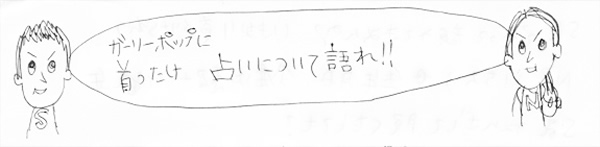 ガーリーポップに
首ったけ 占いについて語れ!!
S
N